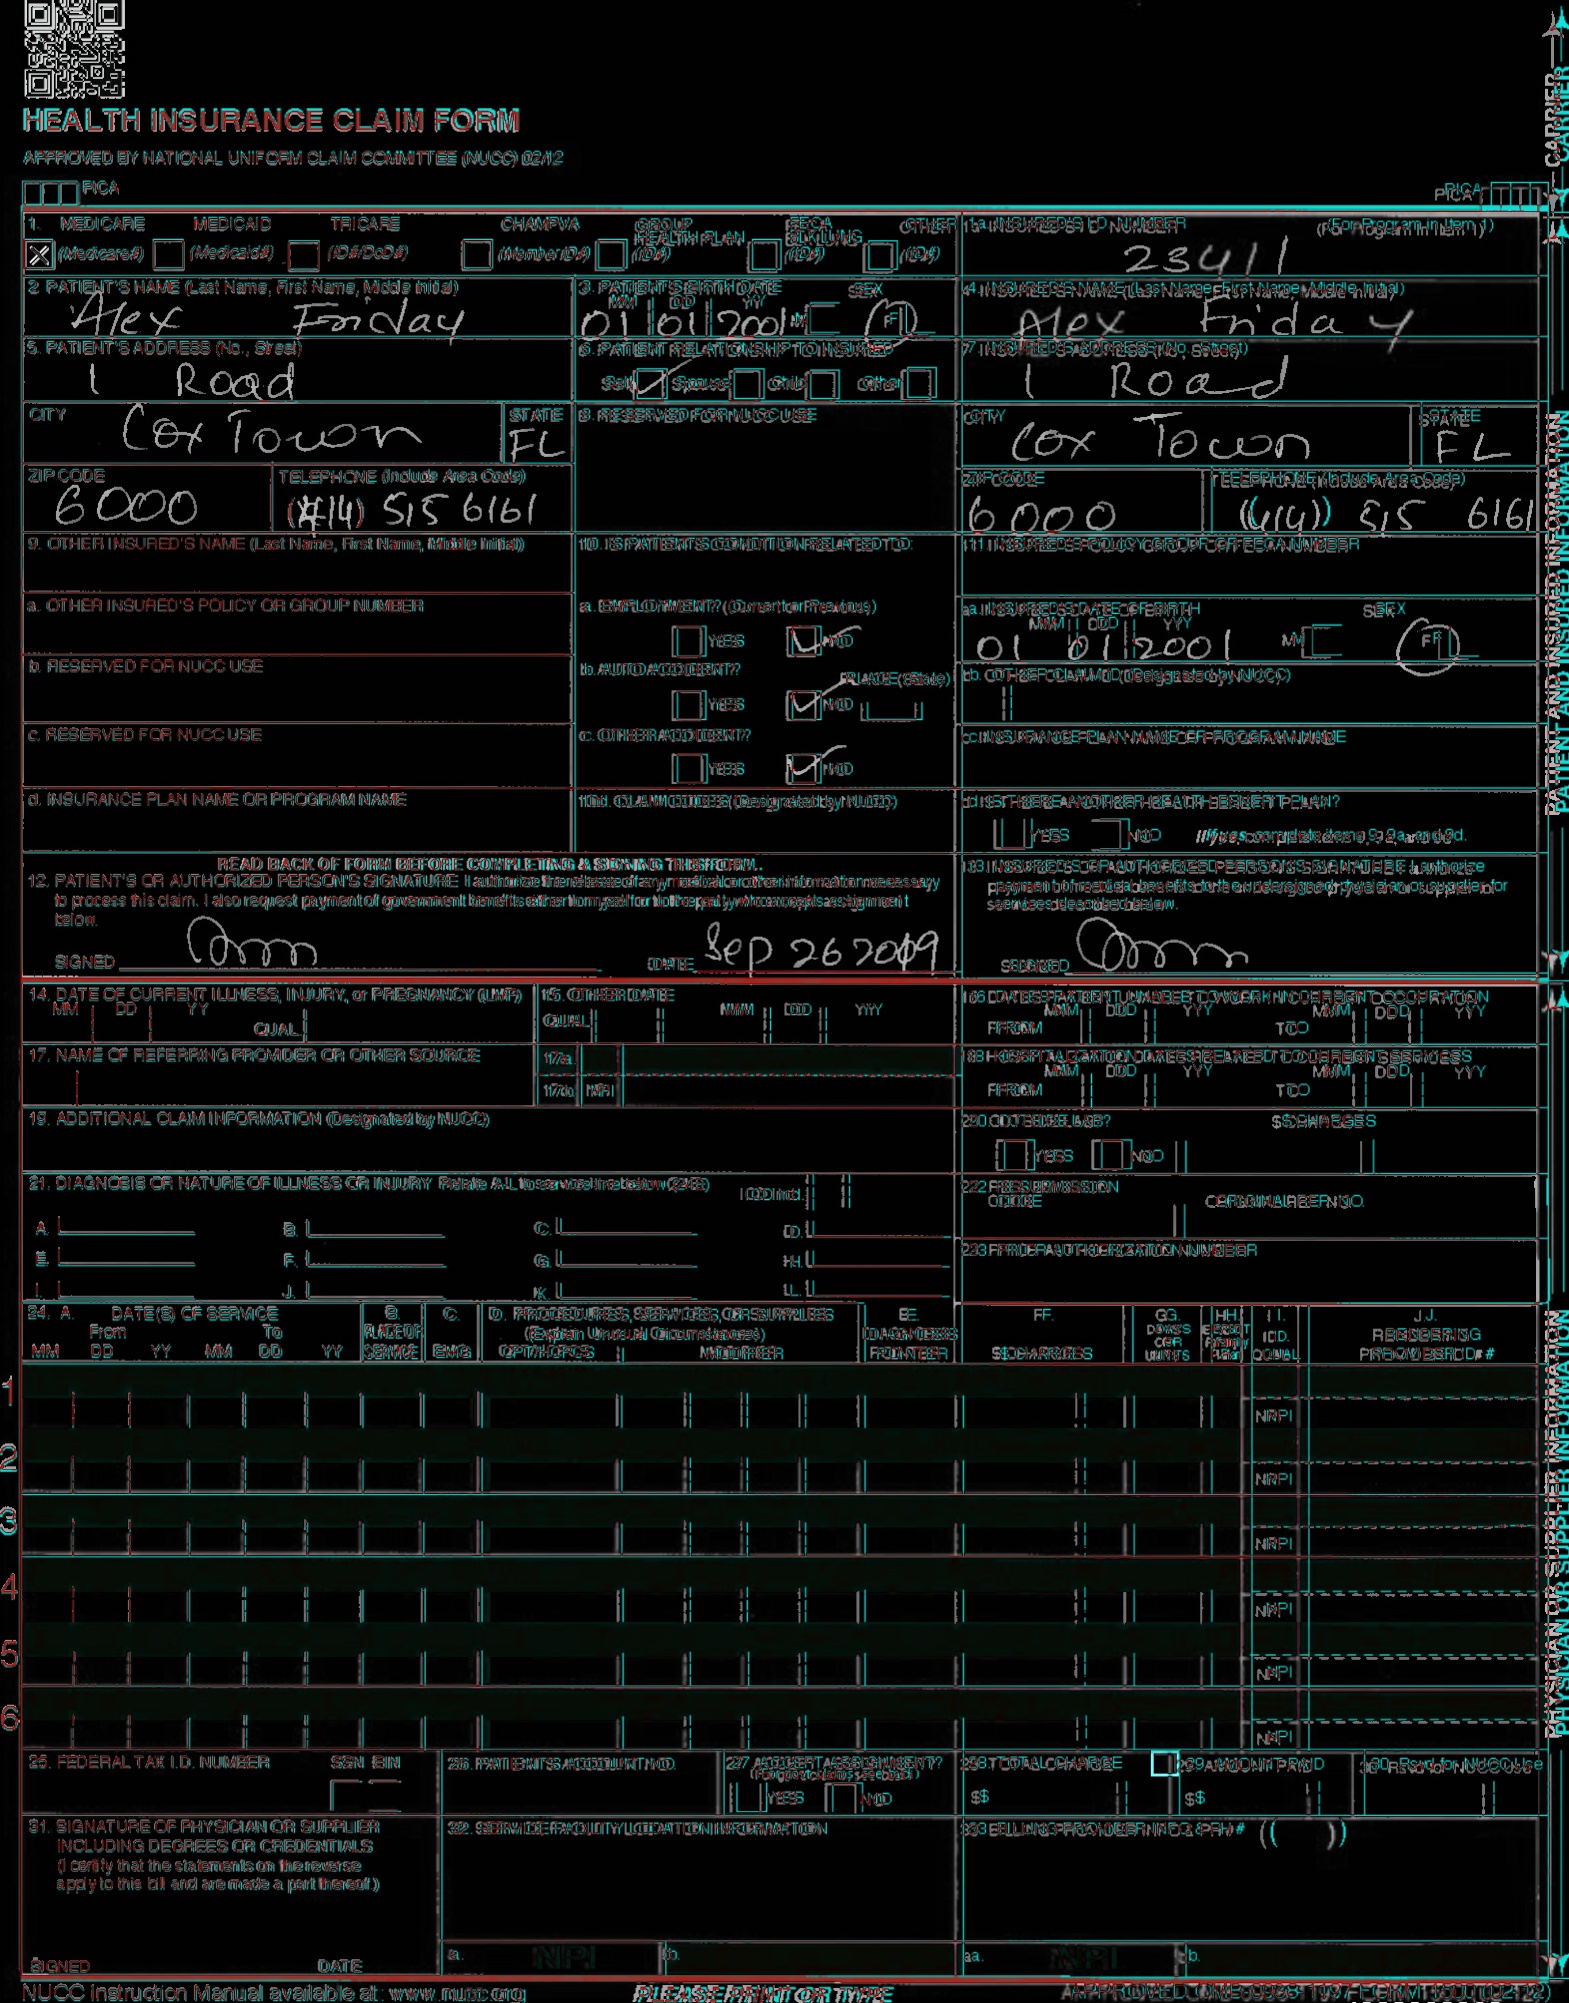 HEALTH INSURANCE CLAIM FORM
APPROVED BY NATIONAL UNIFORM CLAIM COMMITTEE (NUCC) 02/12
PICA PICA
CARRIER
1. MEDICARE MEDICAID TRICARE CHAMPVA GROUP HEALTH PLAN FECA BLK LUNG OTHER
(Medicare#) (Medicaid#) (ID#/DoD#) (Member ID#) (ID#) (ID#) (ID#)
1a. INSURED'S I.D. NUMBER (For Program in Item 1)
23411
2. PATIENT'S NAME (Last Name, First Name, Middle Initial)
Alex Friday
3. PATIENT'S BIRTH DATE SEX
MM DD YY
01 01 2001 M F
4. INSURED'S NAME (Last Name, First Name, Middle Initial)
Alex Friday
5. PATIENT'S ADDRESS (No., Street)
1 Road
6. PATIENT RELATIONSHIP TO INSURED
Self Spouse Child Other
7. INSURED'S ADDRESS (No., Street)
1 Road
CITY STATE
Cox Town FL
8. RESERVED FOR NUCC USE
CITY STATE
Cox Town FL
ZIP CODE TELEPHONE (Include Area Code)
6000 (414) 515 6161
ZIP CODE TELEPHONE (Include Area Code)
6000 (414) 515 6161
9. OTHER INSURED'S NAME (Last Name, First Name, Middle Initial)
10. IS PATIENT'S CONDITION RELATED TO:
11. INSURED'S POLICY GROUP OR FECA NUMBER
a. OTHER INSURED'S POLICY OR GROUP NUMBER
a. EMPLOYMENT? (Current or Previous)
YES NO
a. INSURED'S DATE OF BIRTH SEX
MM DD YY
01 01 2001 M F
b. RESERVED FOR NUCC USE
b. AUTO ACCIDENT? PLACE (State)
YES NO
b. OTHER CLAIM ID (Designated by NUCC)
c. RESERVED FOR NUCC USE
c. OTHER ACCIDENT?
YES NO
c. INSURANCE PLAN NAME OR PROGRAM NAME
d. INSURANCE PLAN NAME OR PROGRAM NAME
10d. CLAIM CODES (Designated by NUCC)
d. IS THERE ANOTHER HEALTH BENEFIT PLAN?
YES NO If yes, complete items 9, 9a, and 9d.
READ BACK OF FORM BEFORE COMPLETING & SIGNING THIS FORM.
12. PATIENT'S OR AUTHORIZED PERSON'S SIGNATURE I authorize the release of any medical or other information necessary
to process this claim. I also request payment of government benefits either to myself or to the party who accepts assignment
below.
SIGNED DATE Sep 26 2019
13. INSURED'S OR AUTHORIZED PERSON'S SIGNATURE I authorize
payment of medical benefits to the undersigned physician or supplier for
services described below.
SIGNED
PATIENT AND INSURED INFORMATION
14. DATE OF CURRENT ILLNESS, INJURY, or PREGNANCY (LMP)
MM DD YY
QUAL.
15. OTHER DATE
QUAL. MM DD YY
16. DATES PATIENT UNABLE TO WORK IN CURRENT OCCUPATION
MM DD YY MM DD YY
FROM TO
17. NAME OF REFERRING PROVIDER OR OTHER SOURCE
17a.
17b. NPI
18. HOSPITALIZATION DATES RELATED TO CURRENT SERVICES
MM DD YY MM DD YY
FROM TO
19. ADDITIONAL CLAIM INFORMATION (Designated by NUCC)
20. OUTSIDE LAB? $ CHARGES
YES NO
21. DIAGNOSIS OR NATURE OF ILLNESS OR INJURY Relate A-L to service line below (24E) ICD Ind.
A. B. C. D.
E. F. G. H.
I. J. K. L.
22. RESUBMISSION
CODE ORIGINAL REF. NO.
23. PRIOR AUTHORIZATION NUMBER
24. A. DATE(S) OF SERVICE
From To
MM DD YY MM DD YY
B. PLACE OF SERVICE
C. EMG
D. PROCEDURES, SERVICES, OR SUPPLIES
(Explain Unusual Circumstances)
CPT/HCPCS MODIFIER
E. DIAGNOSIS POINTER
F. $ CHARGES
G. DAYS OR UNITS
H. EPSDT Family Plan
I. ID. QUAL.
J. RENDERING PROVIDER ID. #
1 NPI
2 NPI
3 NPI
4 NPI
5 NPI
6 NPI
25. FEDERAL TAX I.D. NUMBER SSN EIN
26. PATIENT'S ACCOUNT NO.
27. ACCEPT ASSIGNMENT?
(For govt. claims, see back)
YES NO
28. TOTAL CHARGE
$
29. AMOUNT PAID
$
30. Rsvd for NUCC Use
31. SIGNATURE OF PHYSICIAN OR SUPPLIER
INCLUDING DEGREES OR CREDENTIALS
(I certify that the statements on the reverse
apply to this bill and are made a part thereof.)
SIGNED DATE
32. SERVICE FACILITY LOCATION INFORMATION
a. NPI b.
33. BILLING PROVIDER INFO & PH # ( )
a. NPI b.
PHYSICIAN OR SUPPLIER INFORMATION
NUCC Instruction Manual available at: www.nucc.org
PLEASE PRINT OR TYPE